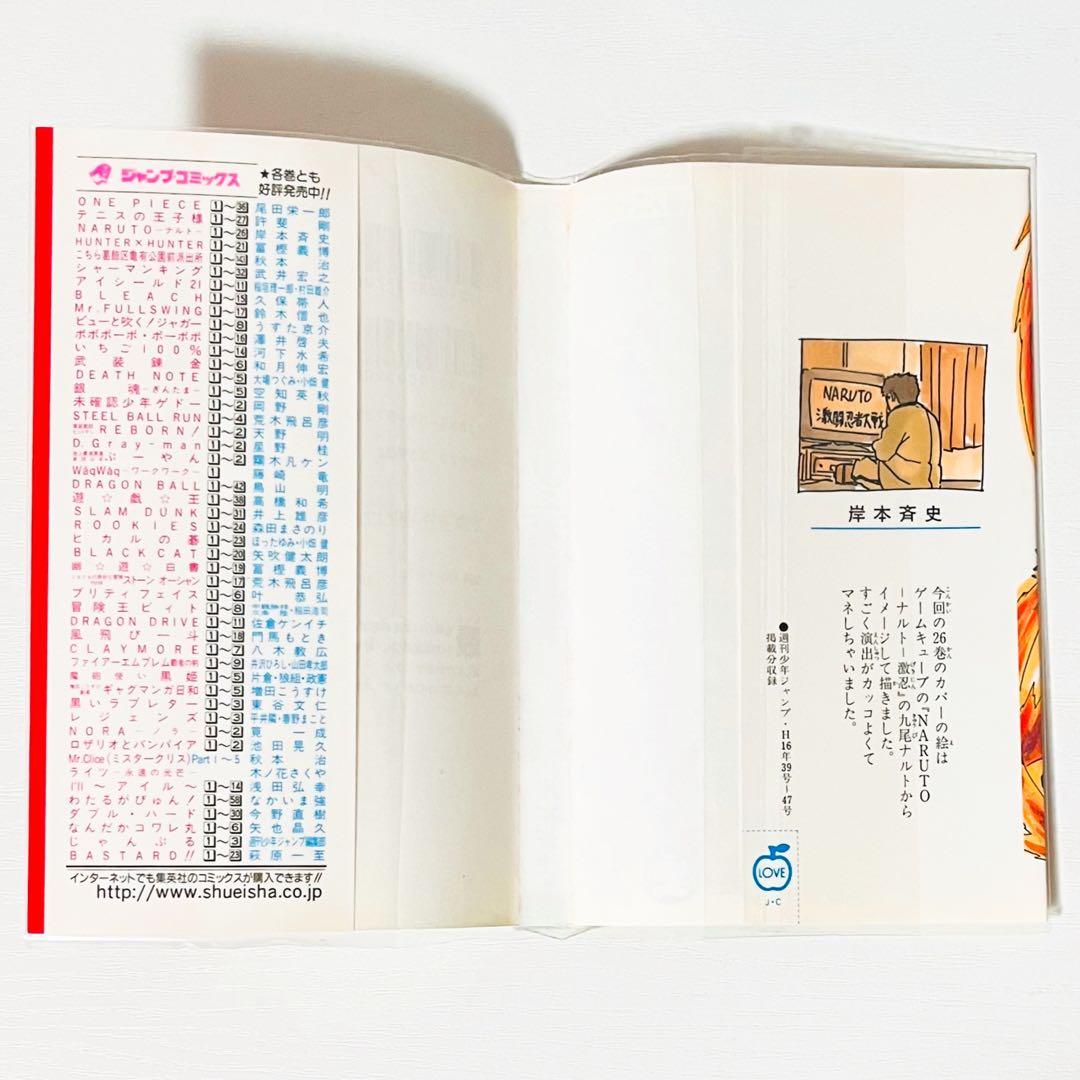 ジャンプコミックス
★各巻とも
好評発売中!!
ONE PIECE 1〜36 尾田栄一郎
テニスの王子様 1〜27 許斐剛
NARUTO―ナルト― 1〜26 岸本斉史
HUNTER×HUNTER 1〜21 冨樫義博
こちら葛飾区亀有公園前派出所 秋本治
シャーマンキング 1〜32 武井宏之
アイシールド21 1〜11 稲垣理一郎・村田雄介
BLEACH 1〜15 久保帯人
Mr.FULLSWING 1〜17 鈴木信也
ピューと吹く!ジャガー 1〜8 うすた京介
ボボボーボ・ボーボボ 1〜16 澤井啓夫
いちご100% 1〜14 河下水希
武装錬金 1〜6 和月伸宏
DEATH NOTE 1〜5 大場つぐみ・小畑健
銀魂―ぎんたま― 1〜5 空知英秋
未確認少年ゲドー 1〜2 岡野剛
STEEL BALL RUN 1〜4 荒木飛呂彦
REBORN! 1〜2 天野明
D.Gray-man 1〜2 星野桂
ぷーやん 1〜2 霧木凡ケン
WāqWāq―ワークワーク― 1 藤崎竜
DRAGON BALL 1〜42 鳥山明
遊☆戯☆王 1〜38 高橋和希
SLAM DUNK 1〜31 井上雄彦
ROOKIES 1〜24 森田まさのり
ヒカルの碁 1〜23 ほったゆみ・小畑健
BLACK CAT 1〜20 矢吹健太朗
幽☆遊☆白書 1〜19 冨樫義博
ストーン オーシャン 1〜17 荒木飛呂彦
プリティフェイス 1〜6 叶恭弘
冒険王ビィト 1〜8 三条陸・稲田浩司
DRAGON DRIVE 1〜11 佐倉ケンイチ
風飛び一斗 1〜18 門馬もとき
CLAYMORE 1〜7 八木教広
ファイアーエムブレム覇者の剣 1〜9 井沢ひろし・山田孝太郎
魔砲使い黒姫 1〜5 片倉・狼組・政憲
ギャグマンガ日和 1〜5 増田こうすけ
黒いラブレター 1〜3 東谷文仁
レジェンズ 1〜3 平井隆・春野まこと
NORA―ノラ― 1〜2 筧一成
ロザリオとバンパイア 1〜2 池田晃久
Mr.Clice(ミスタークリス)Part1〜5 秋本治
ライツ―永遠の光芒― 木ノ花さくや
I'll〜アイル〜 1〜14 浅田弘幸
わたるがぴゅん! 1〜58 なかいま強
ダブル・ハード 1〜30 今野直樹
なんだかコワレ丸 1〜6 矢也晶久
じゃんぷる 1〜3 週刊少年ジャンプ編集部
BASTARD!! 1〜23 萩原一至
インターネットでも集英社のコミックスが購入できます!!
http://www.shueisha.co.jp
NARUTO
激闘忍者大戦
岸本斉史
今回の26巻のカバーの絵は
ゲームキューブの『NARUTO
―ナルト―激忍』の九尾ナルトから
イメージして描きました。
すごく演出がカッコよくて
マネしちゃいました。
●週刊少年ジャンプ・H16年39号〜47号
掲載分収録
LOVE
J・C